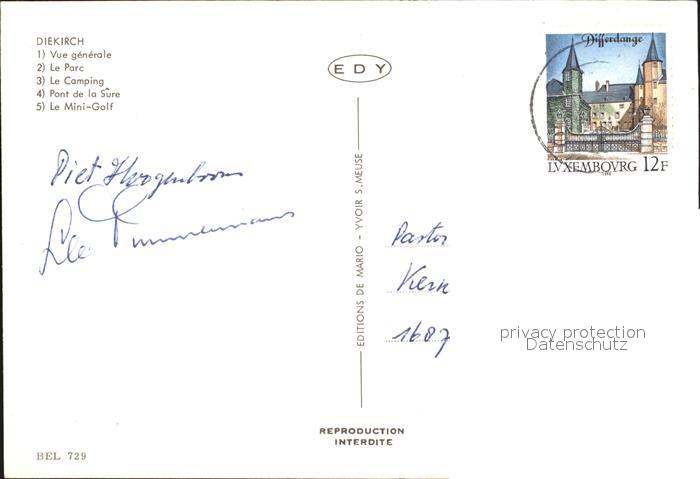 DIEKIRCH
1) Vue générale
2) Le Parc
3) Le Camping
4) Pont de la Sûre
5) Le Mini-Golf
EDY
Differdange
LVXEMBOVRG 12F
Piet Hoogenboom
Timmermans
EDITIONS DE MARIO - YVOIR S. MEUSE
Pastor
Kerk
1687
privacy protection
Datenschutz
REPRODUCTION
INTERDITE
BEL 729